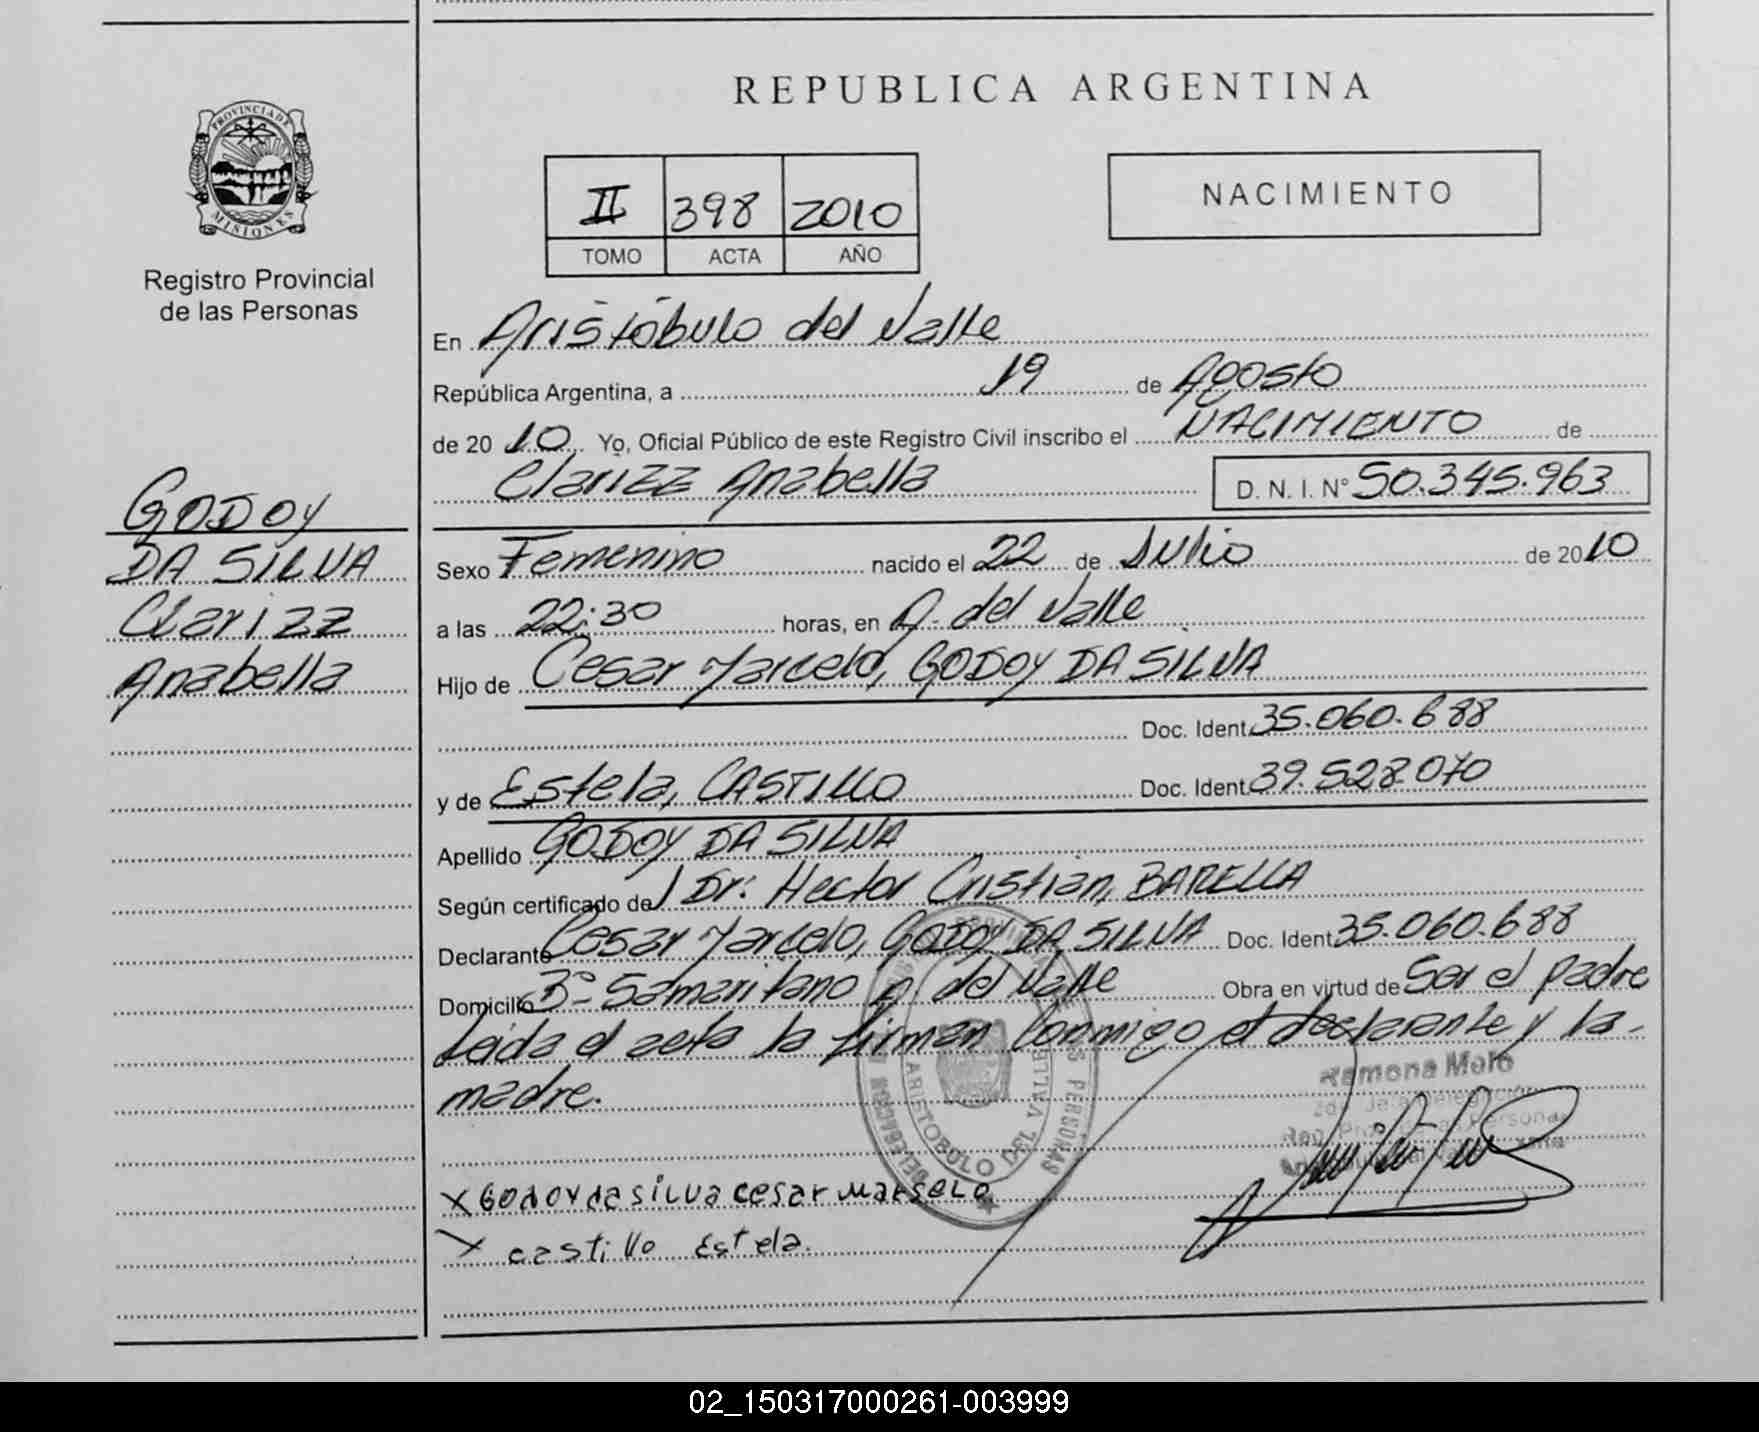 REPUBLICA ARGENTINA
PROVINCIA DE
MISIONES
Registro Provincial
de las Personas
II 398 2010
TOMO ACTA AÑO
NACIMIENTO
En Aristóbulo del Valle
República Argentina, a 19 de Agosto
de 2010 Yo, Oficial Público de este Registro Civil inscribo el NACIMIENTO de
Clarizz Anabella D. N. I. N° 50.345.963
GODOY
DA SILVA
Clarizz
Anabella
Sexo Femenino nacido el 22 de Julio de 2010
a las 22:30 horas, en A. del Valle
Hijo de Cesar Marcelo, GODOY DA SILVA
Doc. Ident. 35.060.688
y de Estela, CASTILLO Doc. Ident. 39.528.070
Apellido GODOY DA SILVA
Según certificado de Dr: Hector Cristian, BARELLA
Declarante Cesar Marcelo, GODOY DA SILVA Doc. Ident. 35.060.688
Domicilio B° Samaritano A. del Valle Obra en virtud de Ser el padre
Leida el acta la firman conmigo el declarante y la
madre.
ARISTOBULO DEL VALLE
Ramona Melo
X Godoy da silva cesar marselo
X castillo Estela.
02_150317000261-003999